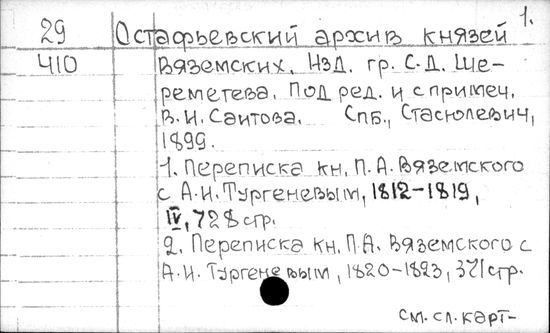 1.
29 Остафьевский архив князей
410 Вяземских. Изд. гр. С.Д. Ше-
реметева. Под ред. и с примеч.
В.И. Саитова. Спб., Стасюлевич,
1899.
1. Переписка кн. П.А. Вяземского
с А.И. Тургеневым, 1812-1819,
IV, 728 стр.
2. Переписка кн. П.А. Вяземского с
А.И. Тургеневым, 1820-1823, 371 стр.
см. сл. карт-